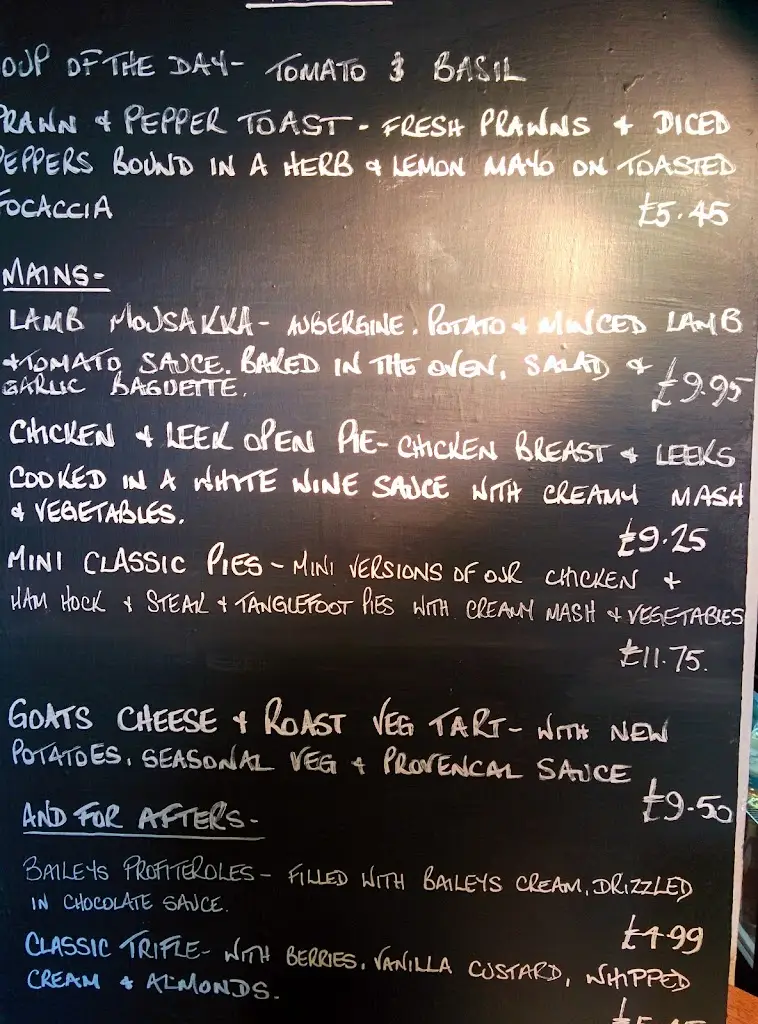 OUP OF THE DAY- TOMATO & BASIL
PRAWN & PEPPER TOAST - FRESH PRAWNS & DICED
PEPPERS BOUND IN A HERB & LEMON MAYO ON TOASTED
FOCACCIA
£5.45
MAINS-
LAMB MOUSAKKA - AUBERGINE, POTATO & MINCED LAMB
& TOMATO SAUCE. BAKED IN THE OVEN, SALAD &
GARLIC BAGUETTE.
£9.95
CHICKEN & LEEK OPEN PIE - CHICKEN BREAST & LEEKS
COOKED IN A WHITE WINE SAUCE WITH CREAMY MASH
& VEGETABLES.
£9.25
MINI CLASSIC PIES - MINI VERSIONS OF OUR CHICKEN &
HAM HOCK & STEAK & TANGLEFOOT PIES WITH CREAMY MASH & VEGETABLES
£11.75.
GOATS CHEESE & ROAST VEG TART - WITH NEW
POTATOES, SEASONAL VEG & PROVENCAL SAUCE
£9.50
AND FOR AFTERS-
BAILEYS PROFITEROLES - FILLED WITH BAILEYS CREAM, DRIZZLED
IN CHOCOLATE SAUCE.
£4.99
CLASSIC TRIFLE - WITH BERRIES, VANILLA CUSTARD, WHIPPED
CREAM & ALMONDS.